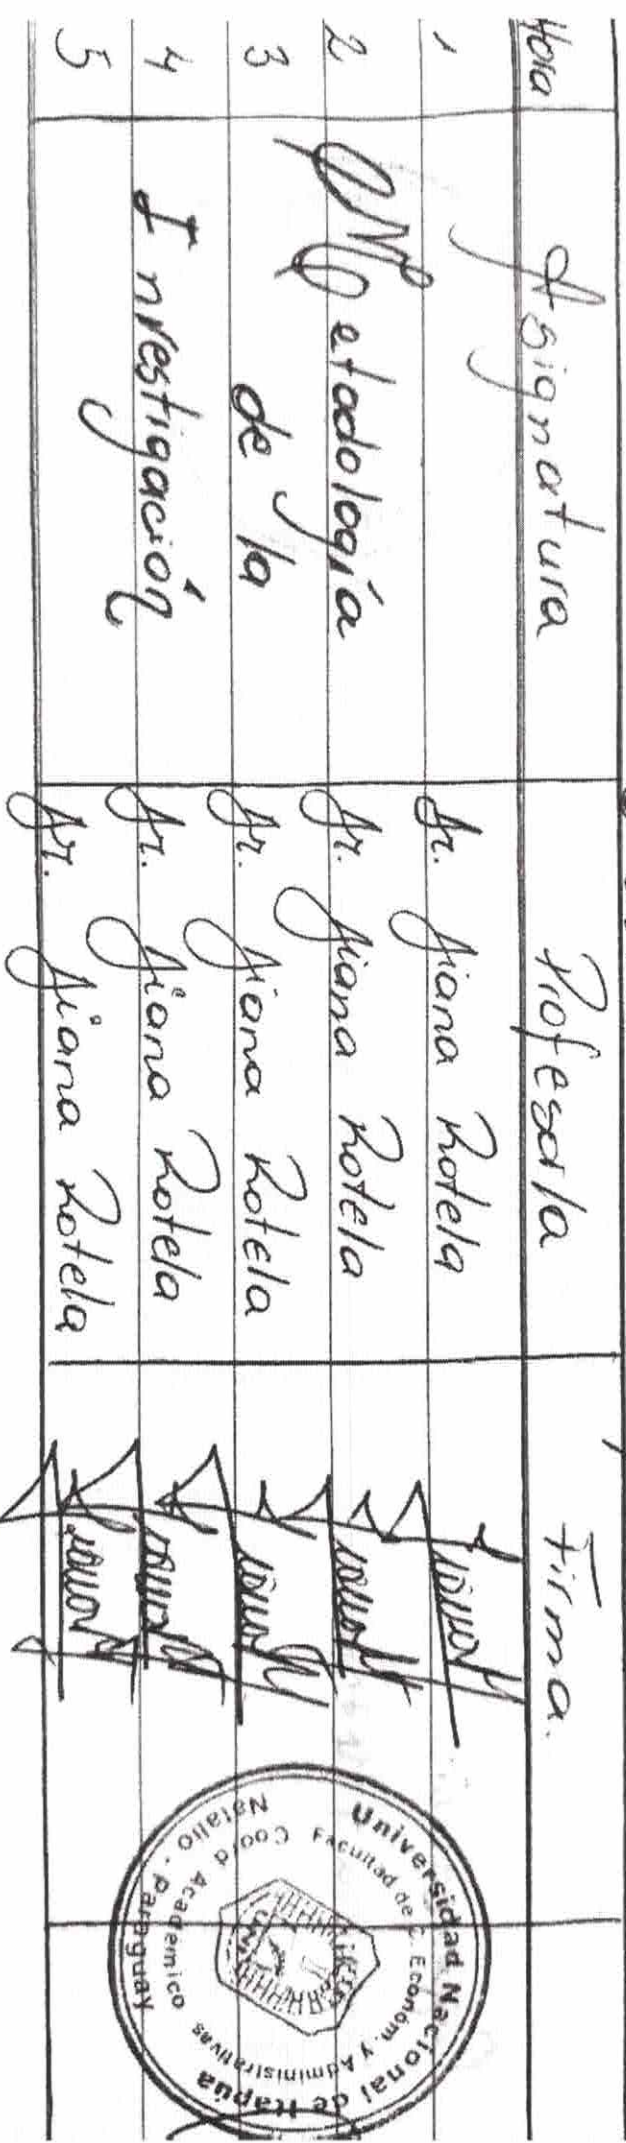 Hora Asignatura Profesor/a Firma.
1 Dr. Diana Rotela
2 Metodología Dr. Diana Rotela
3 de la Dr. Diana Rotela
4 Investigación Dr. Diana Rotela
5 Dr. Diana Rotela
Universidad Nacional de Itapúa
Facultad de C. Económ. y Administrativas
Coord Academico
Natalio - Paraguay
UNI